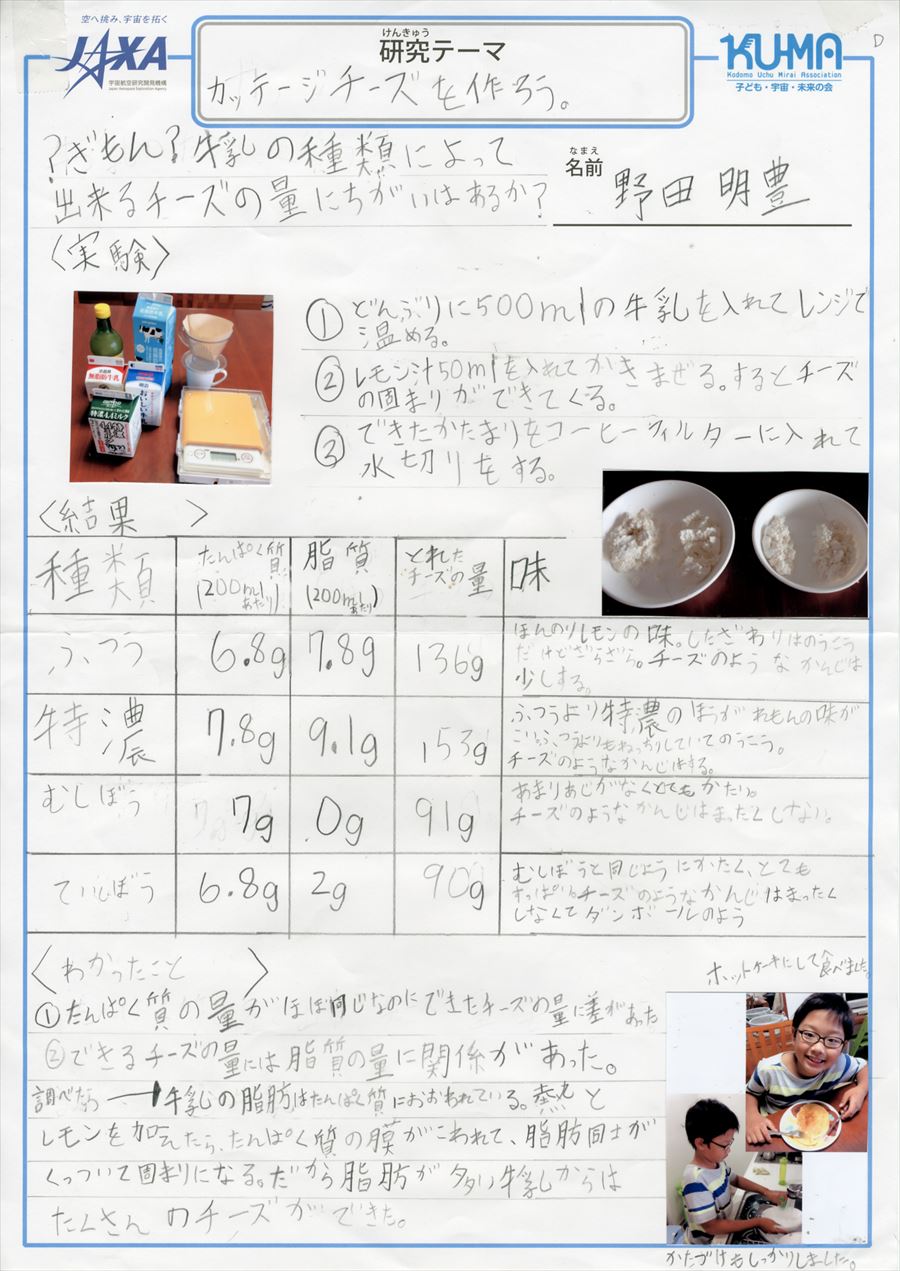 空へ挑み、宇宙を拓く
JAXA
宇宙航空研究開発機構
Japan Aerospace Exploration Agency
けんきゅう
研究テーマ
カッテージチーズを作ろう。
KU-MA
Kodomo Uchu Mirai Association
子ども・宇宙・未来の会
D
?ぎもん?牛乳の種類によって
出来るチーズの量にちがいはあるか?
なまえ
名前
野田 明豊
〈実験〉
①どんぶりに500mlの牛乳を入れてレンジで
温める。
②レモン汁50mlを入れてかきまぜる。するとチーズ
の固まりができてくる。
③できたかたまりをコーヒーフィルターに入れて
水切りをする。
無脂肪牛乳
おいしい牛乳
特濃4.4ミルク
〈結果 〉
種類 たんぱく質(200mlあたり) 脂質(200mlあたり) とれたチーズの量 味
ふつう 6.8g 7.8g 136g
ほんのりレモンの味。したざわりはのうこう
だけどざらざら。チーズのようなかんじは
少しする。
特濃 7.8g 9.1g 153g
ふつうより特濃のほうがれもんの味が
こい。ふつうよりもねっかりしていてのうこう。
チーズのようなかんじはする。
むしぼう 7g 0g 91g
あまりあじがなくとてもかたい。
チーズのようなかんじはまったくしない。
ていしぼう 6.8g 2g 90g
むしぼうと同じようにかたく、とても
すっぱい。チーズのようなかんじはまったく
しなくてダンボールのよう
〈わかったこと 〉
①たんぱく質の量がほぼ同じなのにできたチーズの量に差があった
②できるチーズの量には脂質の量に関係があった。
調べたら→牛乳の脂肪はたんぱく質におおわれている。熱と
レモンを加えたら、たんぱく質の膜がこわれて、脂肪同士が
くっついて固まりになる。だから脂肪が多い牛乳からは
たくさんのチーズができた。
ホットケーキにして食べました。
かたづけもしっかりしました。